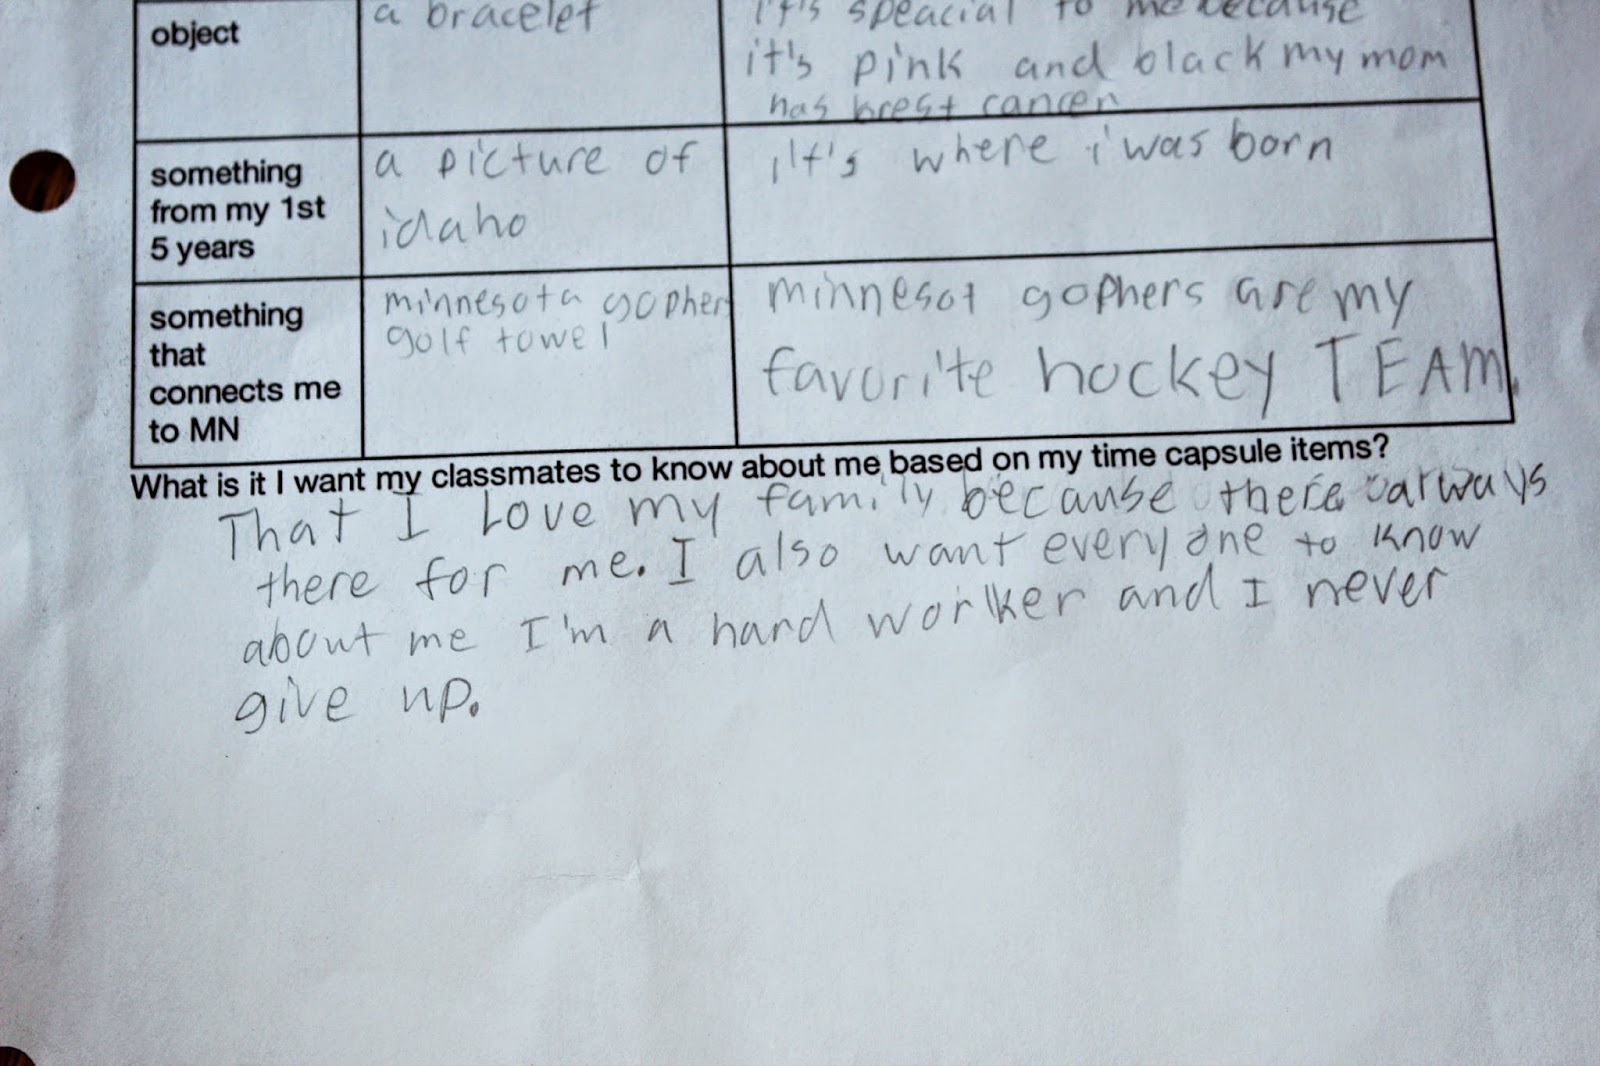 object
a bracelet
it's speacial to me because
it's pink and black my mom
has brest cancer
something
from my 1st
5 years
a picture of
idaho
it's where i was born
something
that
connects me
to MN
minnesota gophers
golf towel
minnesot gophers are my
favorite hockey TEAM.
What is it I want my classmates to know about me based on my time capsule items?
That I Love my family because there always
there for me. I also want everyone to know
about me I'm a hard worker and I never
give up.